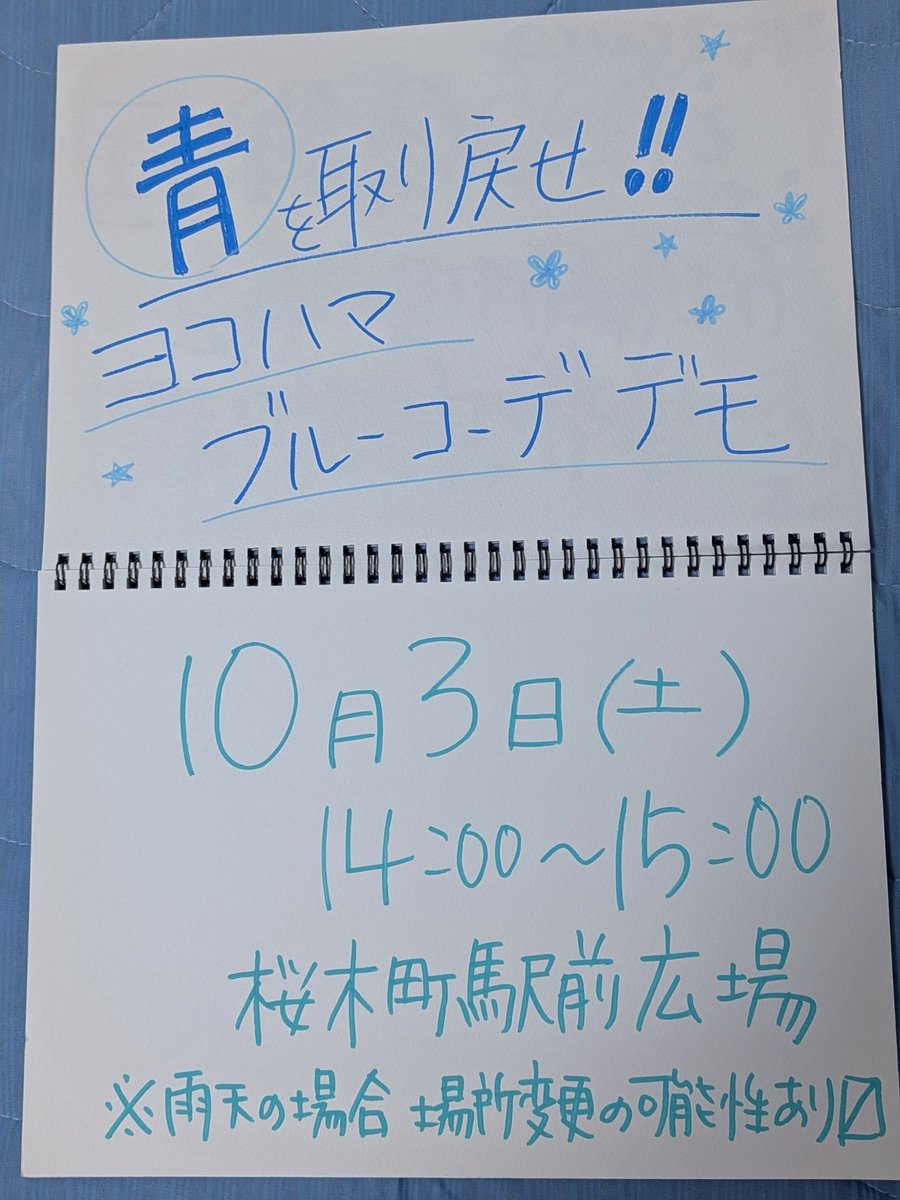 青を取り戻せ!!
ヨコハマ
ブルーコーデデモ
10月3日(土)
14:00~15:00
桜木町駅前広場
※雨天の場合 場所変更の可能性あり〼